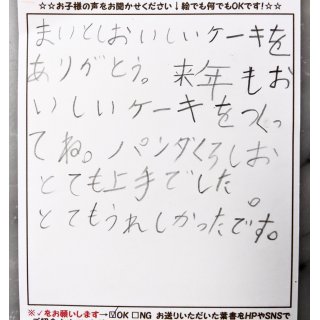 ☆☆お子様の声をお聞かせください↓絵でも何でもOKです!☆☆
まいとしおいしいケーキを
ありがとう。来年もお
いしいケーキをつくっ
てね。パンダくろしお
とても上手でした。
とてもうれしかったです。
※✓をお願いします→☑OK □NG お送りいただいた葉書をHPやSNSで